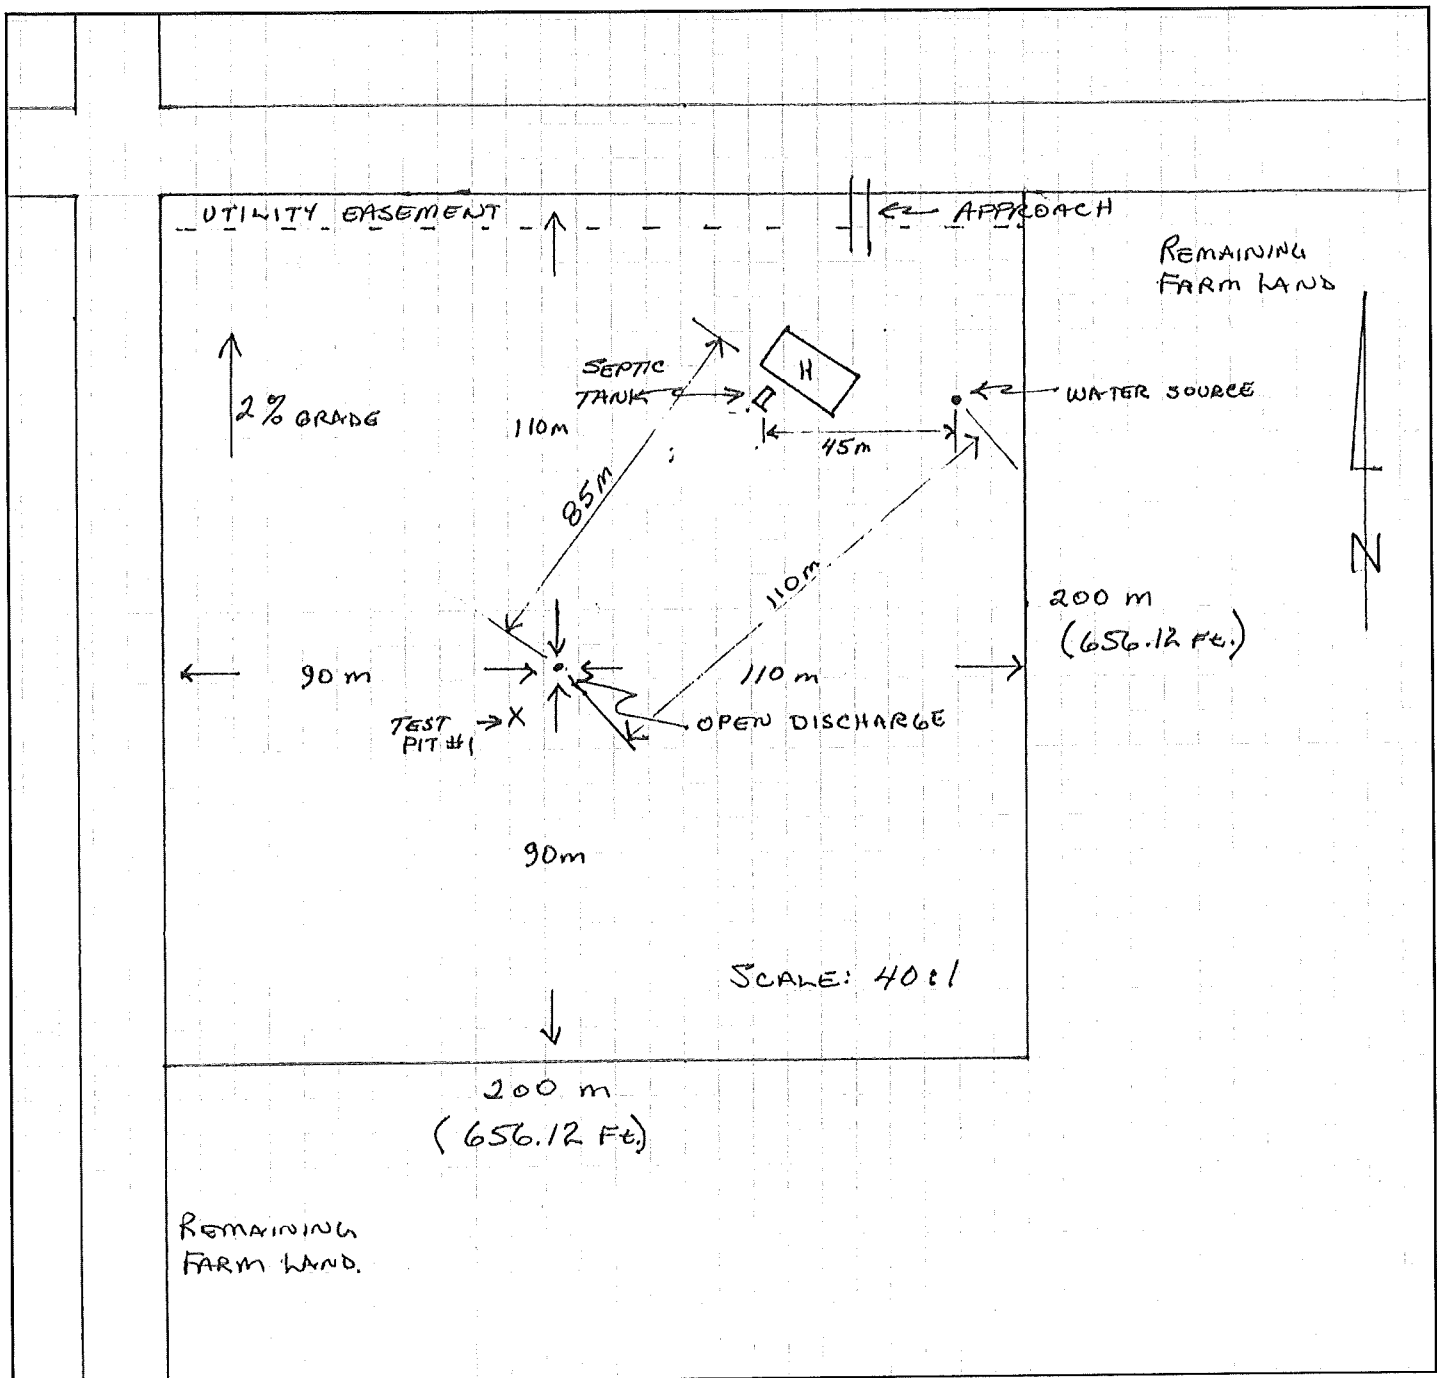 UTILITY EASEMENT
APPROACH
REMAINING
FARM LAND
SEPTIC
TANK
H
WATER SOURCE
2% GRADE
110m
45m
85m
110m
N
200 m
(656.12 Ft.)
90 m
110 m
TEST
PIT #1
X
OPEN DISCHARGE
90m
SCALE: 40:1
200 m
(656.12 Ft.)
REMAINING
FARM LAND.